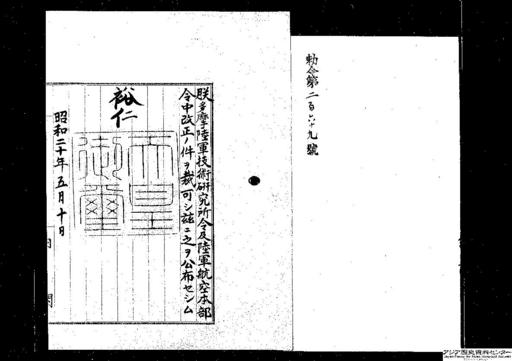 勅令第二百六十九號
朕多摩陸軍技術研究所令及陸軍航空本部
令中改正ノ件ヲ裁可シ茲ニ之ヲ公布セシム
裕仁
天皇御璽
昭和二十年五月十日
内閣
アジア歴史資料センター